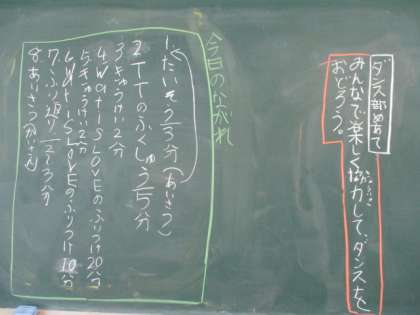 ダンス部めあて
みんなで楽しく協力して、ダンスを
おどろう。
今日のながれ
1.たいそう5分(あいさつ)
2 TTのふくしゅう5分
3 きゅうけい2分
4 What is LOVEのふりつけ20分
5 きゅうけい2分
6 What is LOVEのふりつけ10分
7 ふり返り
8 あいさつ